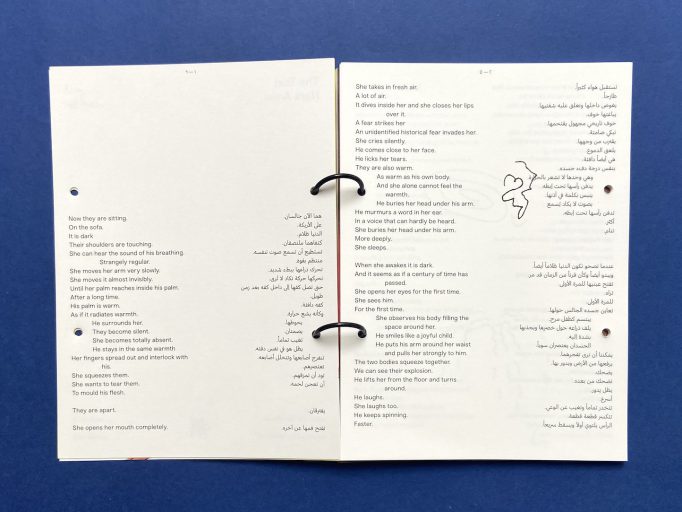 Now they are sitting.
On the sofa.
It is dark
Their shoulders are touching.
She can hear the sound of his breathing.
Strangely regular.
She moves her arm very slowly.
She moves it almost invisibly.
Until her palm reaches inside his palm.
After a long time.
His palm is warm.
As if it radiates warmth.
He surrounds her.
They become silent.
She becomes totally absent.
He stays in the same warmth
Her fingers spread out and interlock with
his.
She squeezes them.
She wants to tear them.
To mould his flesh.
They are apart.
She opens her mouth completely.
هما الآن جالسان.
على الأريكة.
الدنيا ظلام.
كتفاهما ملتصقان.
تستطيع أن تسمع صوت تنفسه.
منتظم بقوة.
تحرك ذراعها ببطء شديد.
تحركها حركة تكاد لا تُرى.
حتى تصل كفها إلى داخل كفه بعد زمن
طويل.
كفه دافئة.
وكأنه يشع حرارة.
يحوطها.
يصمتان.
تغيب تماماً.
يظل هو في نفس دفئه.
تنفرج أصابعها وتتخلل أصابعه.
تعتصرهم.
تود أن تمزقهم.
أن تعجن لحمه.
يفترقان.
تفتح فمها عن آخره.
She takes in fresh air.
A lot of air.
It dives inside her and she closes her lips
over it.
A fear strikes her
An unidentified historical fear invades her.
She cries silently.
He comes close to her face.
He licks her tears.
They are also warm.
As warm as his own body.
And she alone cannot feel the
warmth.
He buries her head under his arm.
He murmurs a word in her ear.
In a voice that can hardly be heard.
She buries her head under his arm.
More deeply.
She sleeps.
When she awakes it is dark.
And it seems as if a century of time has
passed.
She opens her eyes for the first time.
She sees him.
For the first time.
She observes his body filling the
space around her.
He smiles like a joyful child
He puts his arm around her waist
and pulls her strongly to him.
The two bodies squeeze together.
We can see their explosion.
He lifts her from the floor and turns
around.
He laughs.
She laughs too.
He keeps spinning.
Faster.
تستقبل هواء كثيراً.
طازجاً.
يغوص داخلها وتغلق عليه شفتيها.
يباغتها خوف.
خوف تاريخي مجهول يقتحمها.
تبكي صامتة.
يقترب من وجهها.
يلعق الدموع.
هي أيضاً دافئة.
بنفس درجة دفء جسده.
وهي وحدها لا تشعر
يدفن رأسها تحت إبطه.
يهمس بكلمة في أذنها.
بصوت لا يكاد يُسمع
تدفن رأسها تحت إبطه.
أكثر.
تنام.
عندما تصحو تكون الدنيا ظلاماً أيضاً.
ويبدو أيضاً وكأن قرناً من الزمان قد مر
تفتح عينيها للمرة الأولى.
تراه.
للمرة الأولى.
يبتسم كطفل مرح.
يلف ذراعه حول خصرها ويجذبها
بشدة إليه.
الجسدان يعتصران سوياً.
يمكننا أن نرى تفجرهما.
يرفعها من الأرض ويدور بها.
يضحك.
تضحك من بعده.
يظل يدور.
أسرع.